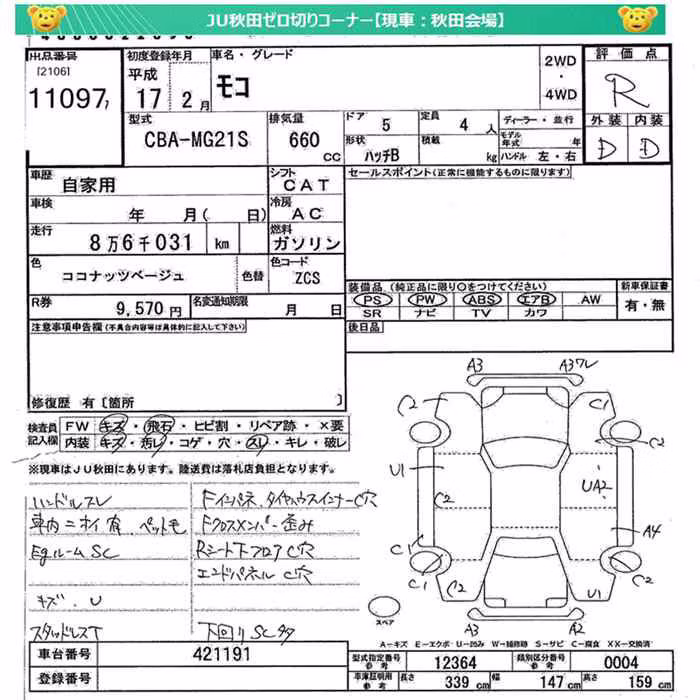 JU秋田ゼロ切りコーナー【現車：秋田会場】
出品番号
[2106]
11097
初度登録年月
平成
17 2月
車名・グレード
モコ
2WD
・
4WD
評価点
R
外装 内装
D D
型式
CBA-MG21S
排気量
660
CC
ドア 5
定員 4 人
形状 ハッチB
積載 kg
ディーラー・並行
モデル年式 年
ハンドル 左・右
車歴
自家用
シフト
CAT
セールスポイント(正常に機能するものに限ります)
車検
年 月( 日)
冷房
AC
走行
8万6千031 km
燃料
ガソリン
色
ココナッツベージュ
色替
色コード
ZCS
装備品 (純正品に限り○をつけてください)
PS PW ABS エアB AW
SR ナビ TV カワ
新車保証書
有・無
R券
9,570円
名変通知期限
月 日
後日品
注意事項申告欄(不具合内容等は具体的に記入して下さい)
修復歴 有〔箇所 〕
検査員記入欄
FW キズ・飛石・ヒビ割・リペア跡・×要
内装 キズ・汚レ・コゲ・穴・スレ・キレ・破レ
※現車はJU秋田にあります。陸送費は落札店負担となります。
ハンドルスレ
車内ニオイ有 ペット毛
EgルームSC
キズ・U
スタッドレスT
Fインパネ、タイヤハウスインナーC穴
Fクロスメンバー歪み
Rシート下フロアC穴
エンドパネルC穴
下回りSC多
A3 A3ワレ
C2 C1
C2
U1 C2 UA2
A4
C1
C1 C2 C2 U1
A3 A2
スペア
A－キズ E－エクボ U－凹み W－補修跡 S－サビ C－腐食 XX－交換済
車台番号 421191
登録番号
型式指定番号 参考 12364
類別区分番号 参考 0004
車庫証明用 参考 長さ 339 cm 幅 147 cm 高さ 159 cm